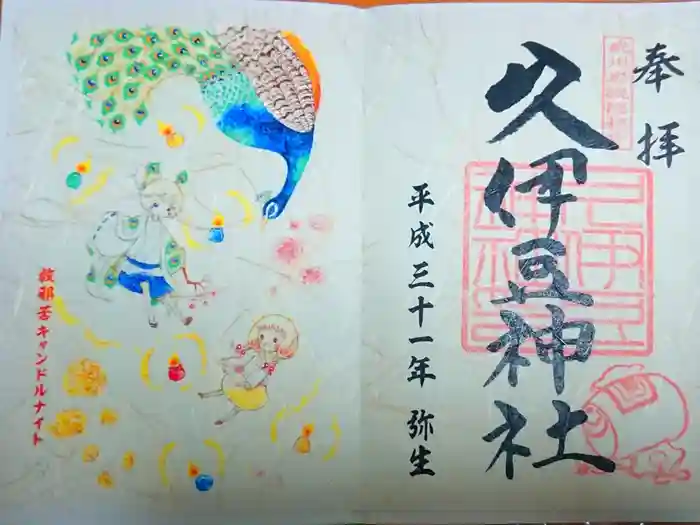 奉拝
久伊豆神社
平成三十一年 弥生
救邪苦キャンドルナイト